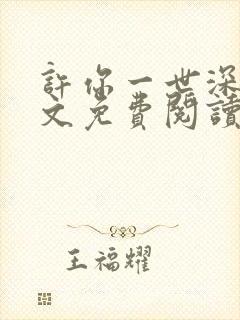 許你一世深
文免費閱讀
王福耀